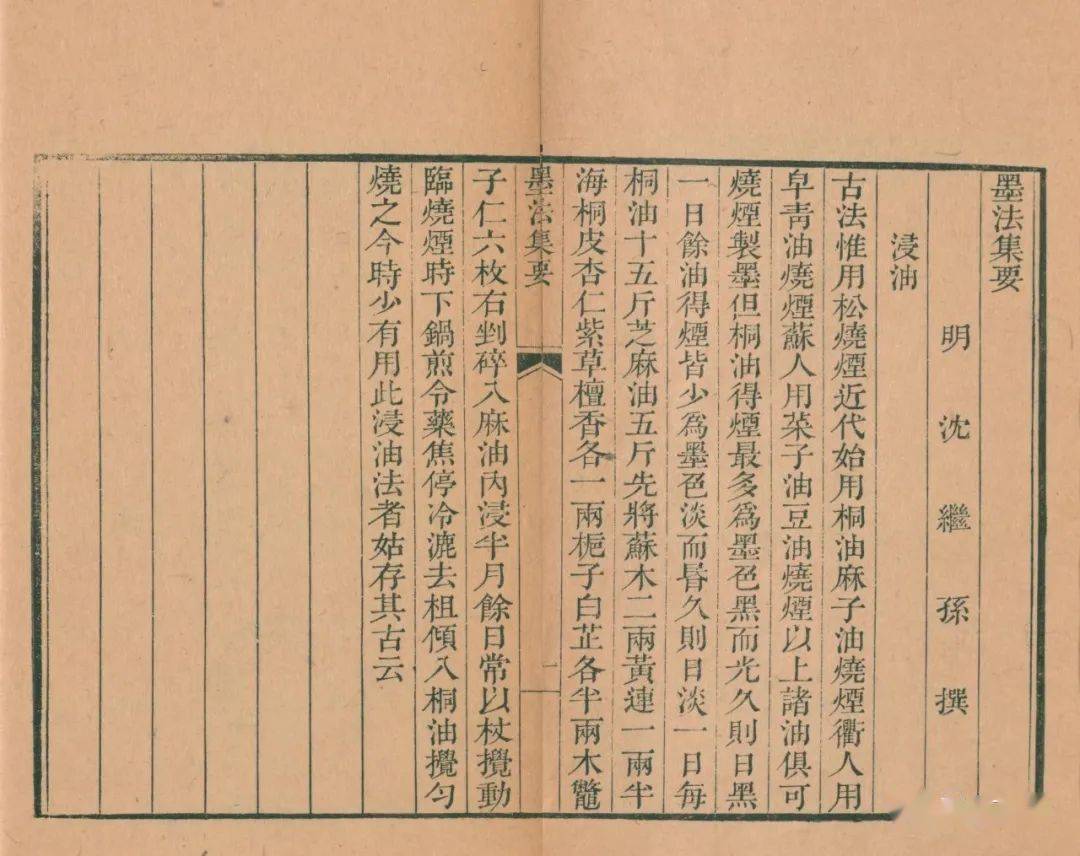 墨法集要
明沈繼孫撰
浸油
古法惟用松燒煙近代始用桐油麻子油燒煙衢人用
皁青油燒煙蘇人用菜子油豆油燒煙以上諸油俱可
燒煙製墨但桐油得煙最多爲墨色黑而光久則日黑
一日餘油得煙皆少爲墨色淡而昬久則日淡一日每
桐油十五斤芝麻油五斤先將蘇木二兩黃連一兩半
海桐皮杏仁紫草檀香各一兩梔子白芷各半兩木鼈
墨法集要
一
子仁六枚右剉碎入麻油內浸半月餘日常以杖攪動
臨燒煙時下鍋煎令藥焦停冷漉去柤傾入桐油攪勻
燒之今時少有用此浸油法者姑存其古云